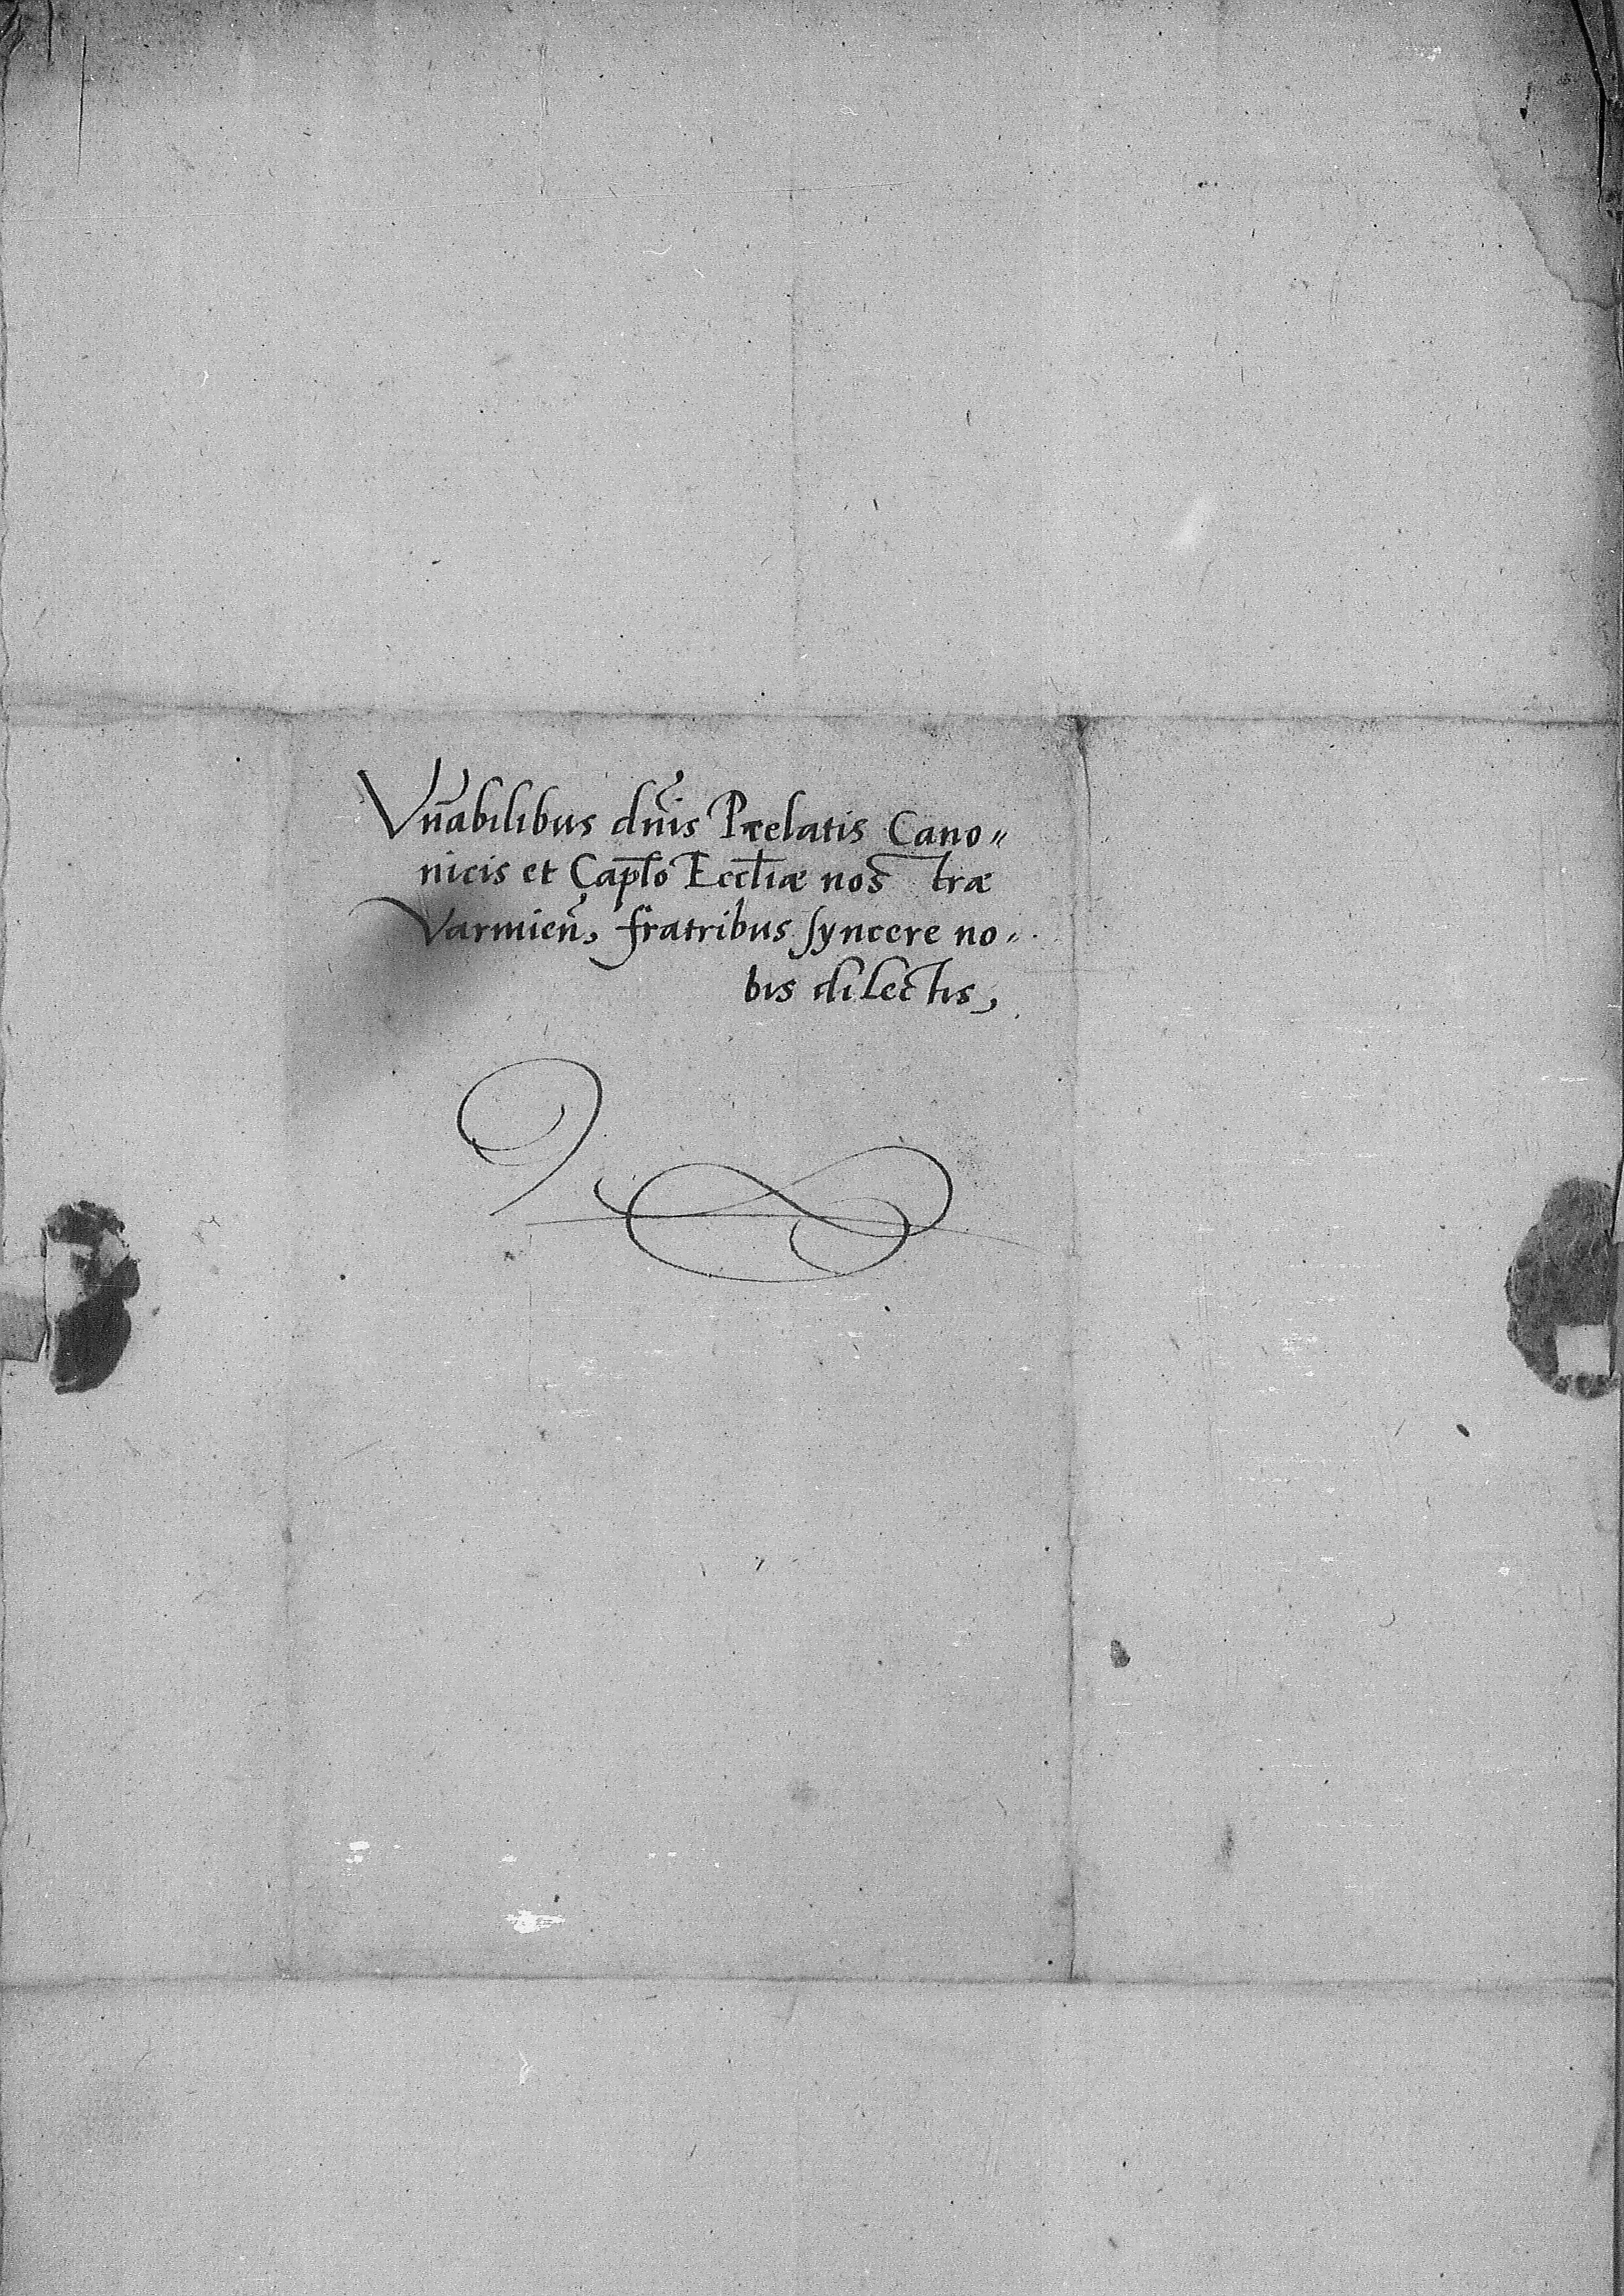 Vn̄abilibus dn̄is Prelatis Cano=
nicis et Cap̄lo Eccl̄iæ nostræ
Varmien̄, fratribus syncere no=
bis dilectis,